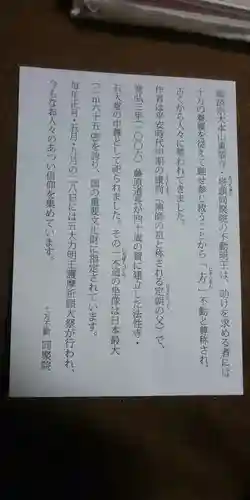 臨済宗大本山東福寺・塔頭同聚院の不動明王は、助けを求める者には
十万の眷属を従えて馳せ参じ救うことから「十万」不動と尊称され、
古くから人々に慕われてきました。
作者は平安時代中期の康尚（佛師の祖と称される定朝の父）で、
寛弘三年（一〇〇六）藤原道長が四十歳の賀に建立した法性寺・
五大堂の中尊として祀られました。その一木造の坐像は日本最大
（二米六十五㎝）を誇り、国の重要文化財に指定されています。
毎年正月・五月・九月の二八日には五大力明王護摩祈願大祭が行われ、
今もなお人々のあつい信仰を集めています。
十万不動 同聚院